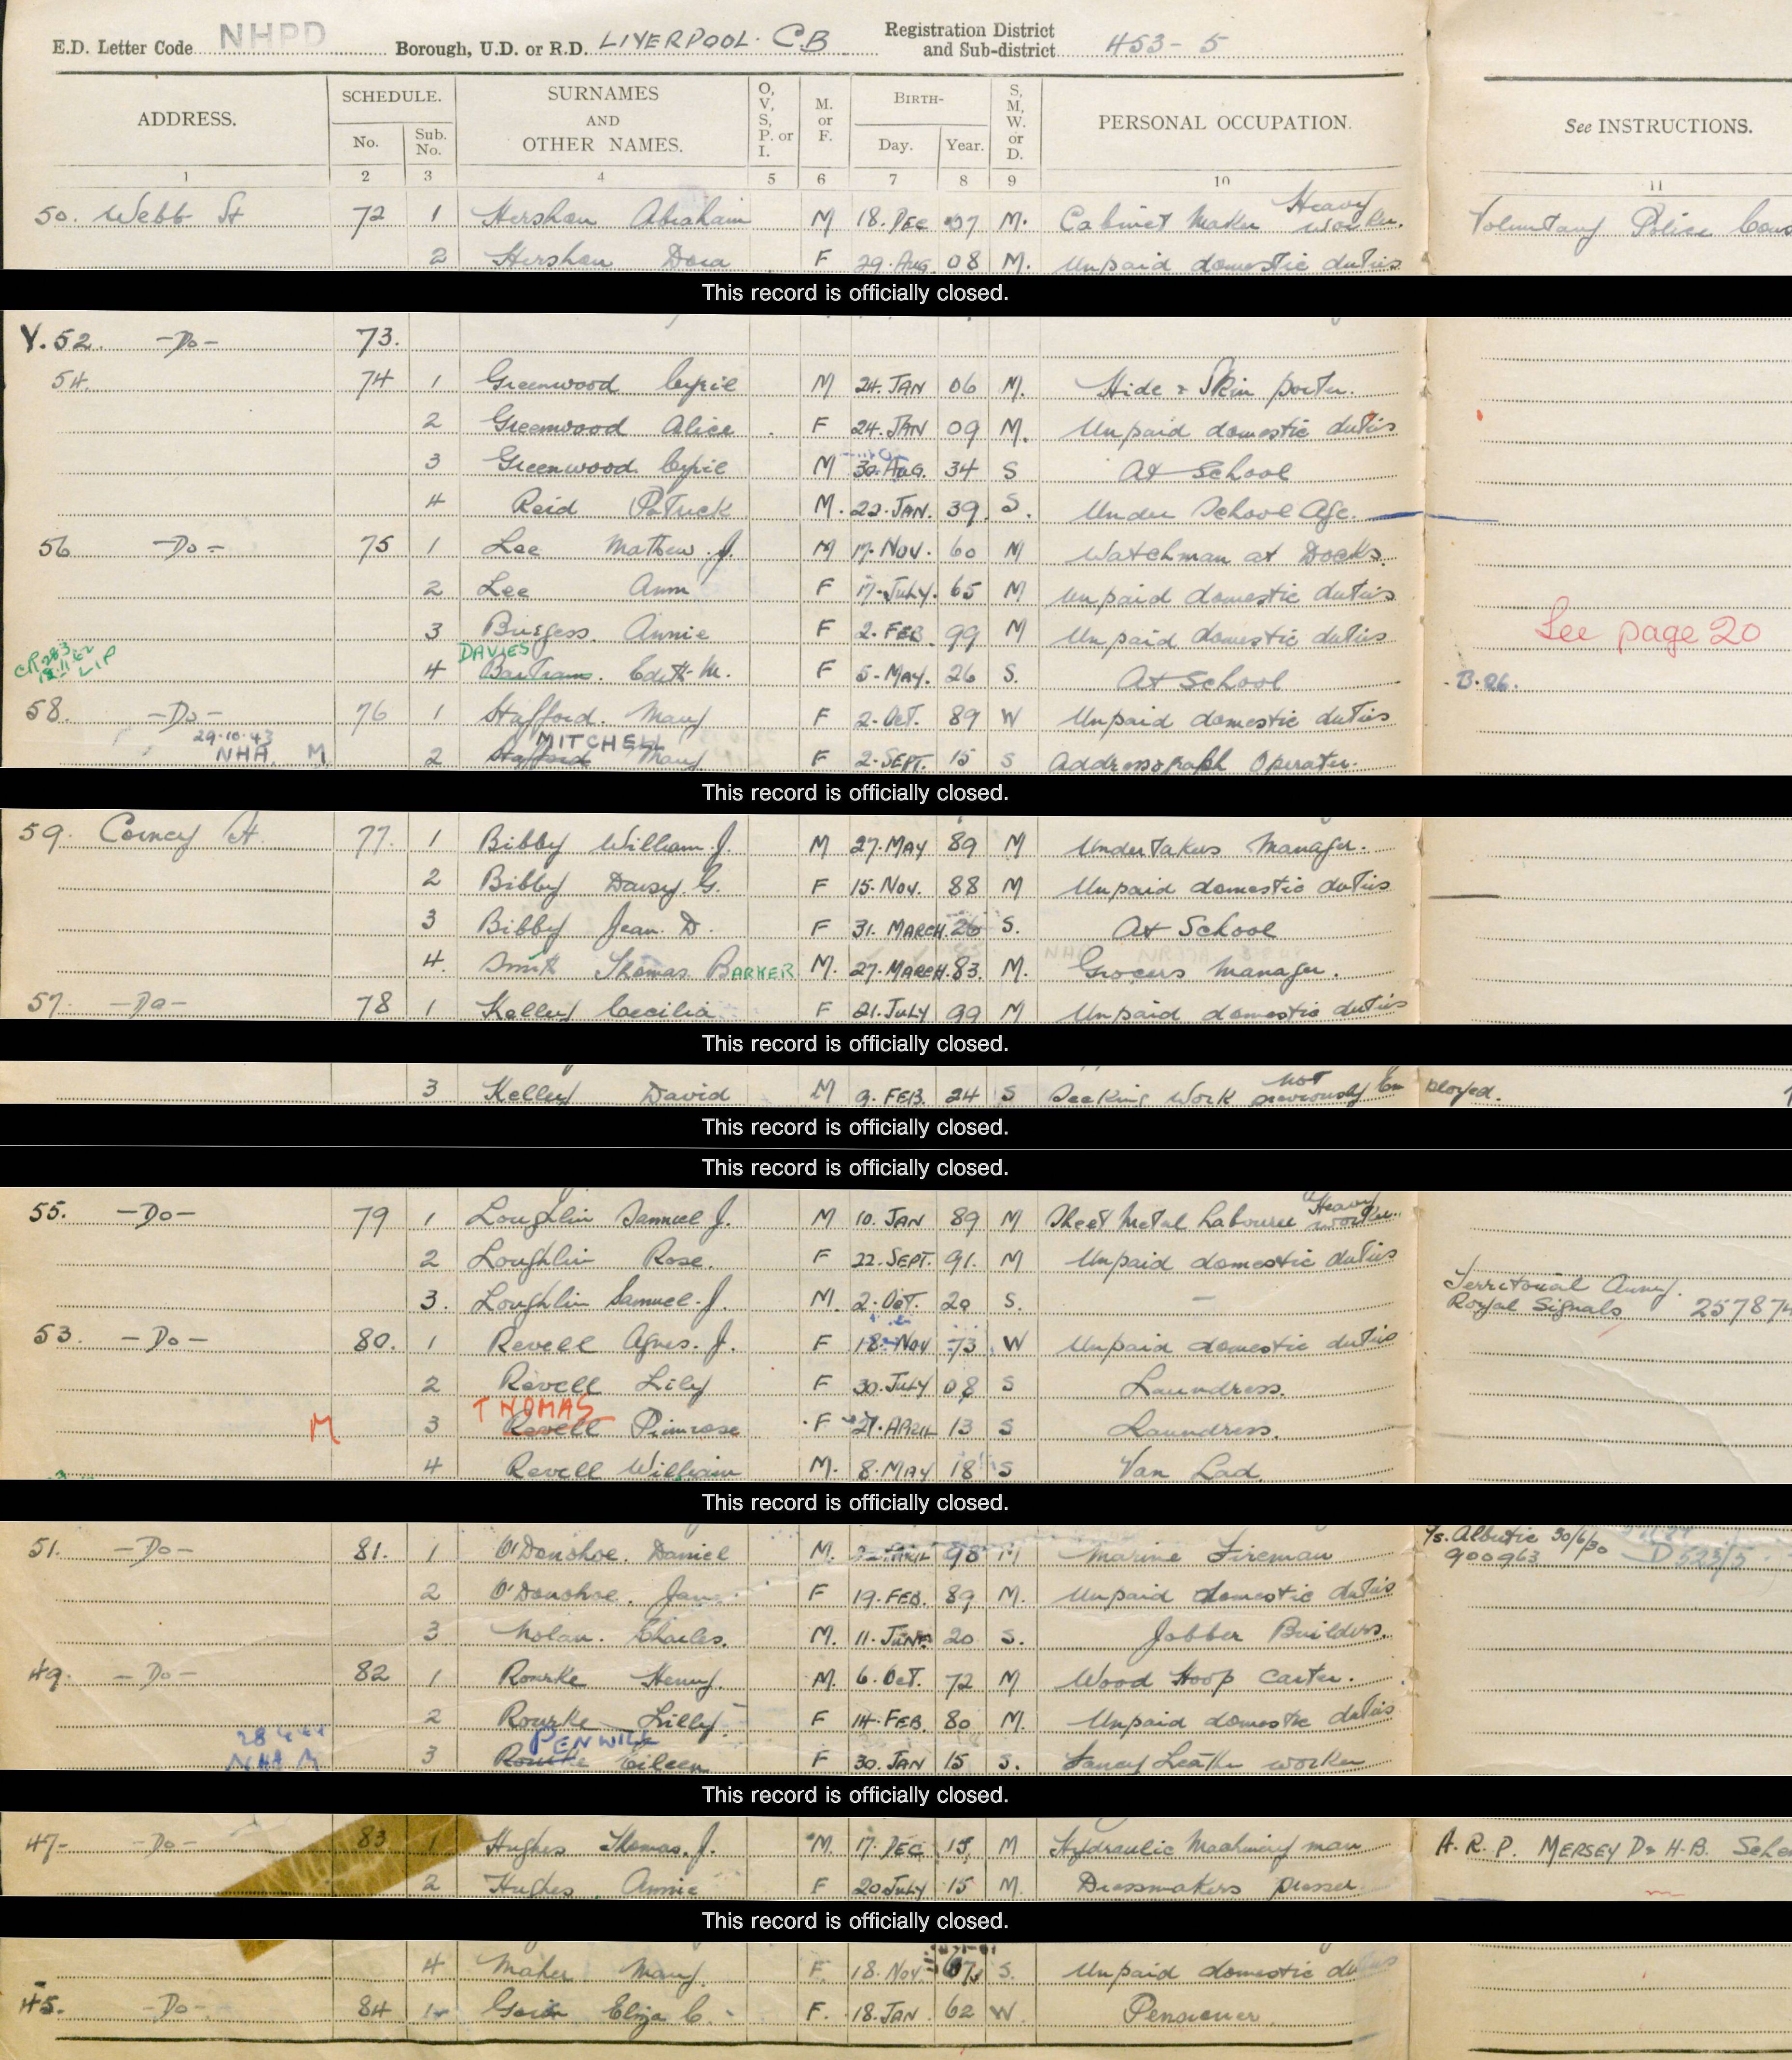 E.D. Letter Code NHPD Borough, U.D. or R.D. LIVERPOOL. C.B Registration District and Sub-district 453-5
ADDRESS. SCHEDULE. No. Sub. No. SURNAMES AND OTHER NAMES. O, V, S, P. or I. M. or F. BIRTH- Day. Year. S, M, W. or D. PERSONAL OCCUPATION. See INSTRUCTIONS.
1 2 3 4 5 6 7 8 9 10 11
50. Webb St 72 1 Hershan Abraham M 18. DEC 07 M. Cabinet Maker Heavy Worker. Voluntary Police Cons
2 Hershan Dora F 29. AUG. 08 M. Unpaid domestic duties
This record is officially closed.
Y. 52. -Do- 73.
54. 74 1 Greenwood Cyril M 24. JAN 06 M. Hide & Skin porter.
2 Greenwood Alice F 24. JAN 09 M. Unpaid domestic duties
3 Greenwood Cyril M 30. AUG. 34 S At School
4 Reid Patrick M. 22. JAN. 39. S. Under School Age.
56 -Do- 75 1 Lee Mathew. J. M 17. NOV. 60 M Watchman at Docks.
2 Lee Ann F 17. JULY. 65 M Unpaid domestic duties
3 Burgess. Annie F 2. FEB. 99 M Unpaid domestic duties See page 20
CR 283 LIP DAVIES
4 Bartram. Edith M. F 5. MAY. 26 S. At School B. 26.
58. -Do- 76 1 Stafford. Mary F 2. OCT. 89 W Unpaid domestic duties
29.10.43 MITCHELL
NHA M 2 Stafford Mary F 2. SEPT. 15 S Addressograph Operator.
This record is officially closed.
59. Corney St. 77. 1 Bibby William. J. M 27. MAY 89 M Undertakers Manager.
2 Bibby Daisy. G. F 15. NOV. 88 M Unpaid domestic duties
3 Bibby Jean. D. F 31. MARCH. 26 S. At School
4. Smith Thomas BARKER M. 27. MARCH. 83. M. Grocers Manager.
57. -Do- 78 1 Kelley Cecilia F 21. JULY 99 M Unpaid domestic duties
This record is officially closed.
3 Kelley David M 9. FEB. 24 S Seeking Work not previously Employed.
This record is officially closed.
This record is officially closed.
55. -Do- 79 1 Loughlin Samuel J. M 10. JAN 89 M Sheet Metal Labourer Heavy worker.
2 Loughlin Rose. F 22. SEPT. 91. M Unpaid domestic duties
3. Loughlin Samuel. J. M. 2. OCT. 20 S. - Territorial Army. Royal Signals 257874
53. -Do- 80. 1 Revell Agnes. J. F 18. NOV 73 W Unpaid domestic duties
2 Revell Lily F 30. JULY 08 S Laundress.
THOMAS
M 3 Revell Primrose F 27. APRIL 13 S Laundress.
4 Revell William M. 8. MAY 18 S Van Lad.
This record is officially closed.
51. -Do- 81. 1 O'Donohoe. Daniel M. APRIL 90 M Marine Fireman 30/6/30 900963
2 O'Donohoe. Jane F 19. FEB. 89 M. Unpaid domestic duties
3 Nolan. Charles. M. 11. JUNE 20 S. Jobber Builders.
49. -Do- 82 1 Rourke Henry. M. 6. OCT. 72 M Wood Hoop Carter.
2 Rourke Lilly F 14. FEB. 80 M. Unpaid domestic duties
NHA M 3 Rourke Eileen F 30. JAN 15 S. Fancy Leather worker
This record is officially closed.
47- -Do- 83 1 Hughes Thomas. J. M. 17. DEC 15 M Hydraulic Machinery man A. R. P. MERSEY D & H.B. Sche
2 Hughes Annie F 20 JULY 15 M. Dressmakers presser
This record is officially closed.
4 Maher Mary. F. 18. NOV S. Unpaid domestic duties
45. -Do- 84 1 Eliza C. F. 18. JAN 62 W. Pensioner